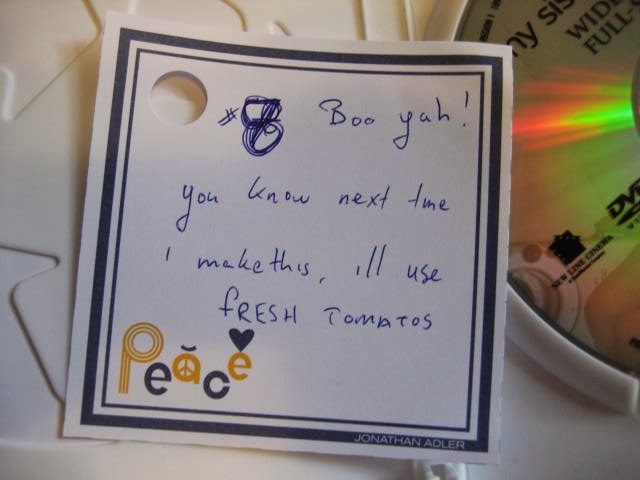 #8 Boo yah!
you know next time
I make this, ill use
fRESH TOMATOS
Peace
JONATHAN ADLER
my sis
WIDE
FULL-
DVD
NEW LINE CINEMA